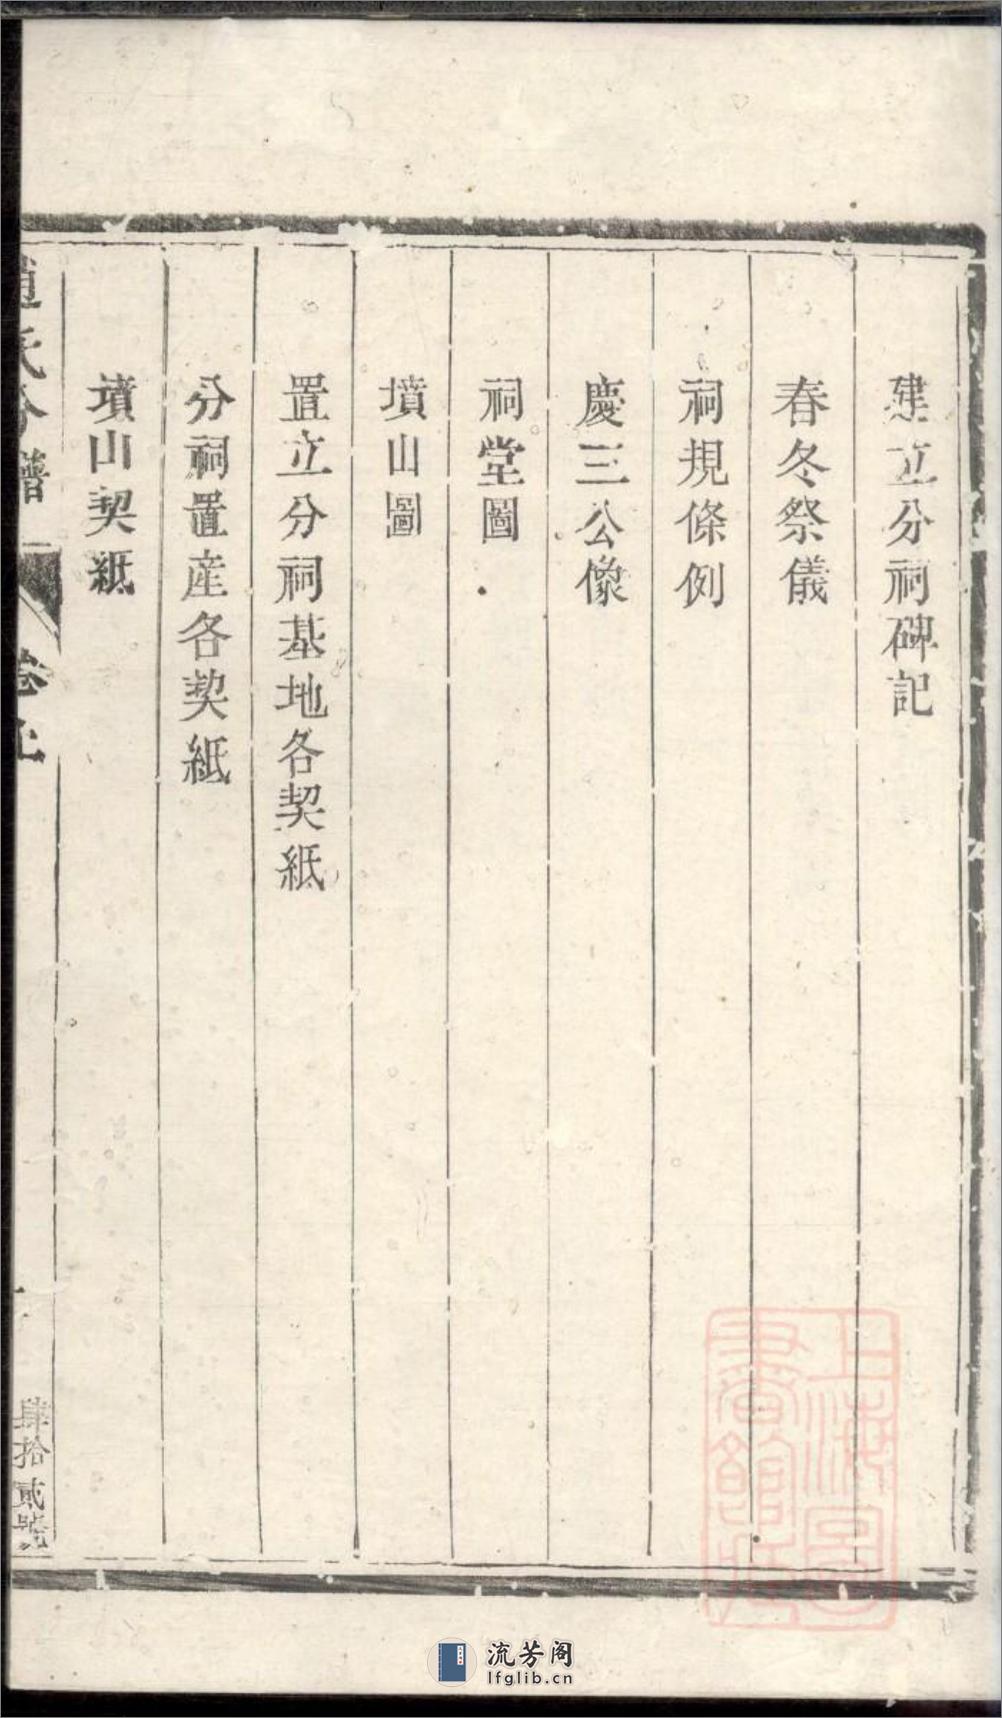 建立分祠碑記
春冬祭儀
祠規條例
慶三公像
祠堂圖
墳山圖
置立分祠基地各契紙
分祠置産各契紙
墳山契紙
趙氏分譜
卷上
一
肆拾貳號
上海圖書館藏
流芳阁
lfglib.cn